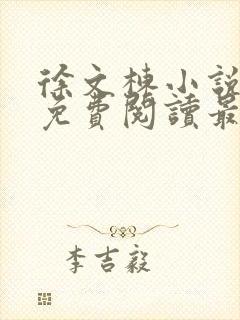 徐文棟小說
免費閱讀最
李吉毅